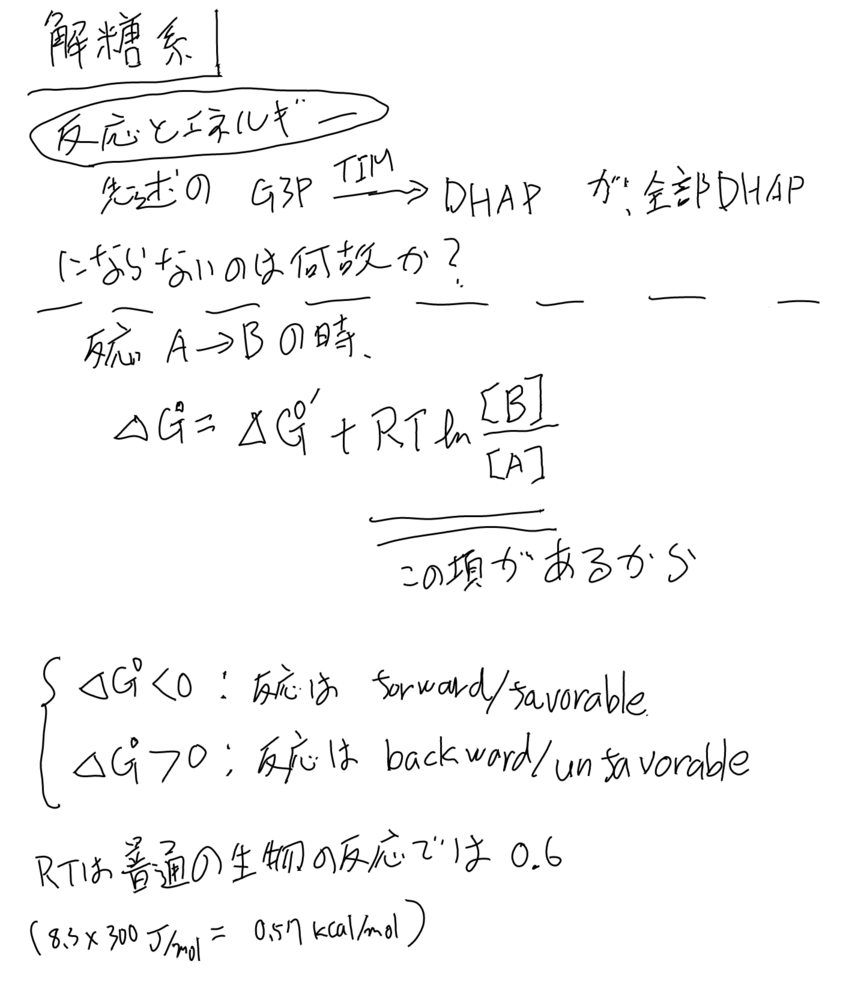 解糖系
反応とエネルギー
先述の G3P TIM→ DHAP が、全部DHAP
にならないのは何故か?
反応 A→B の時、
ΔG° = ΔG°′ + RT ln [B]/[A]
この項があるから
ΔG°<0 : 反応は forward/favorable
ΔG°>0 : 反応は backward/unfavorable
RTは普通の生物の反応では 0.6
(8.3×300 J/mol = 0.57 kcal/mol)